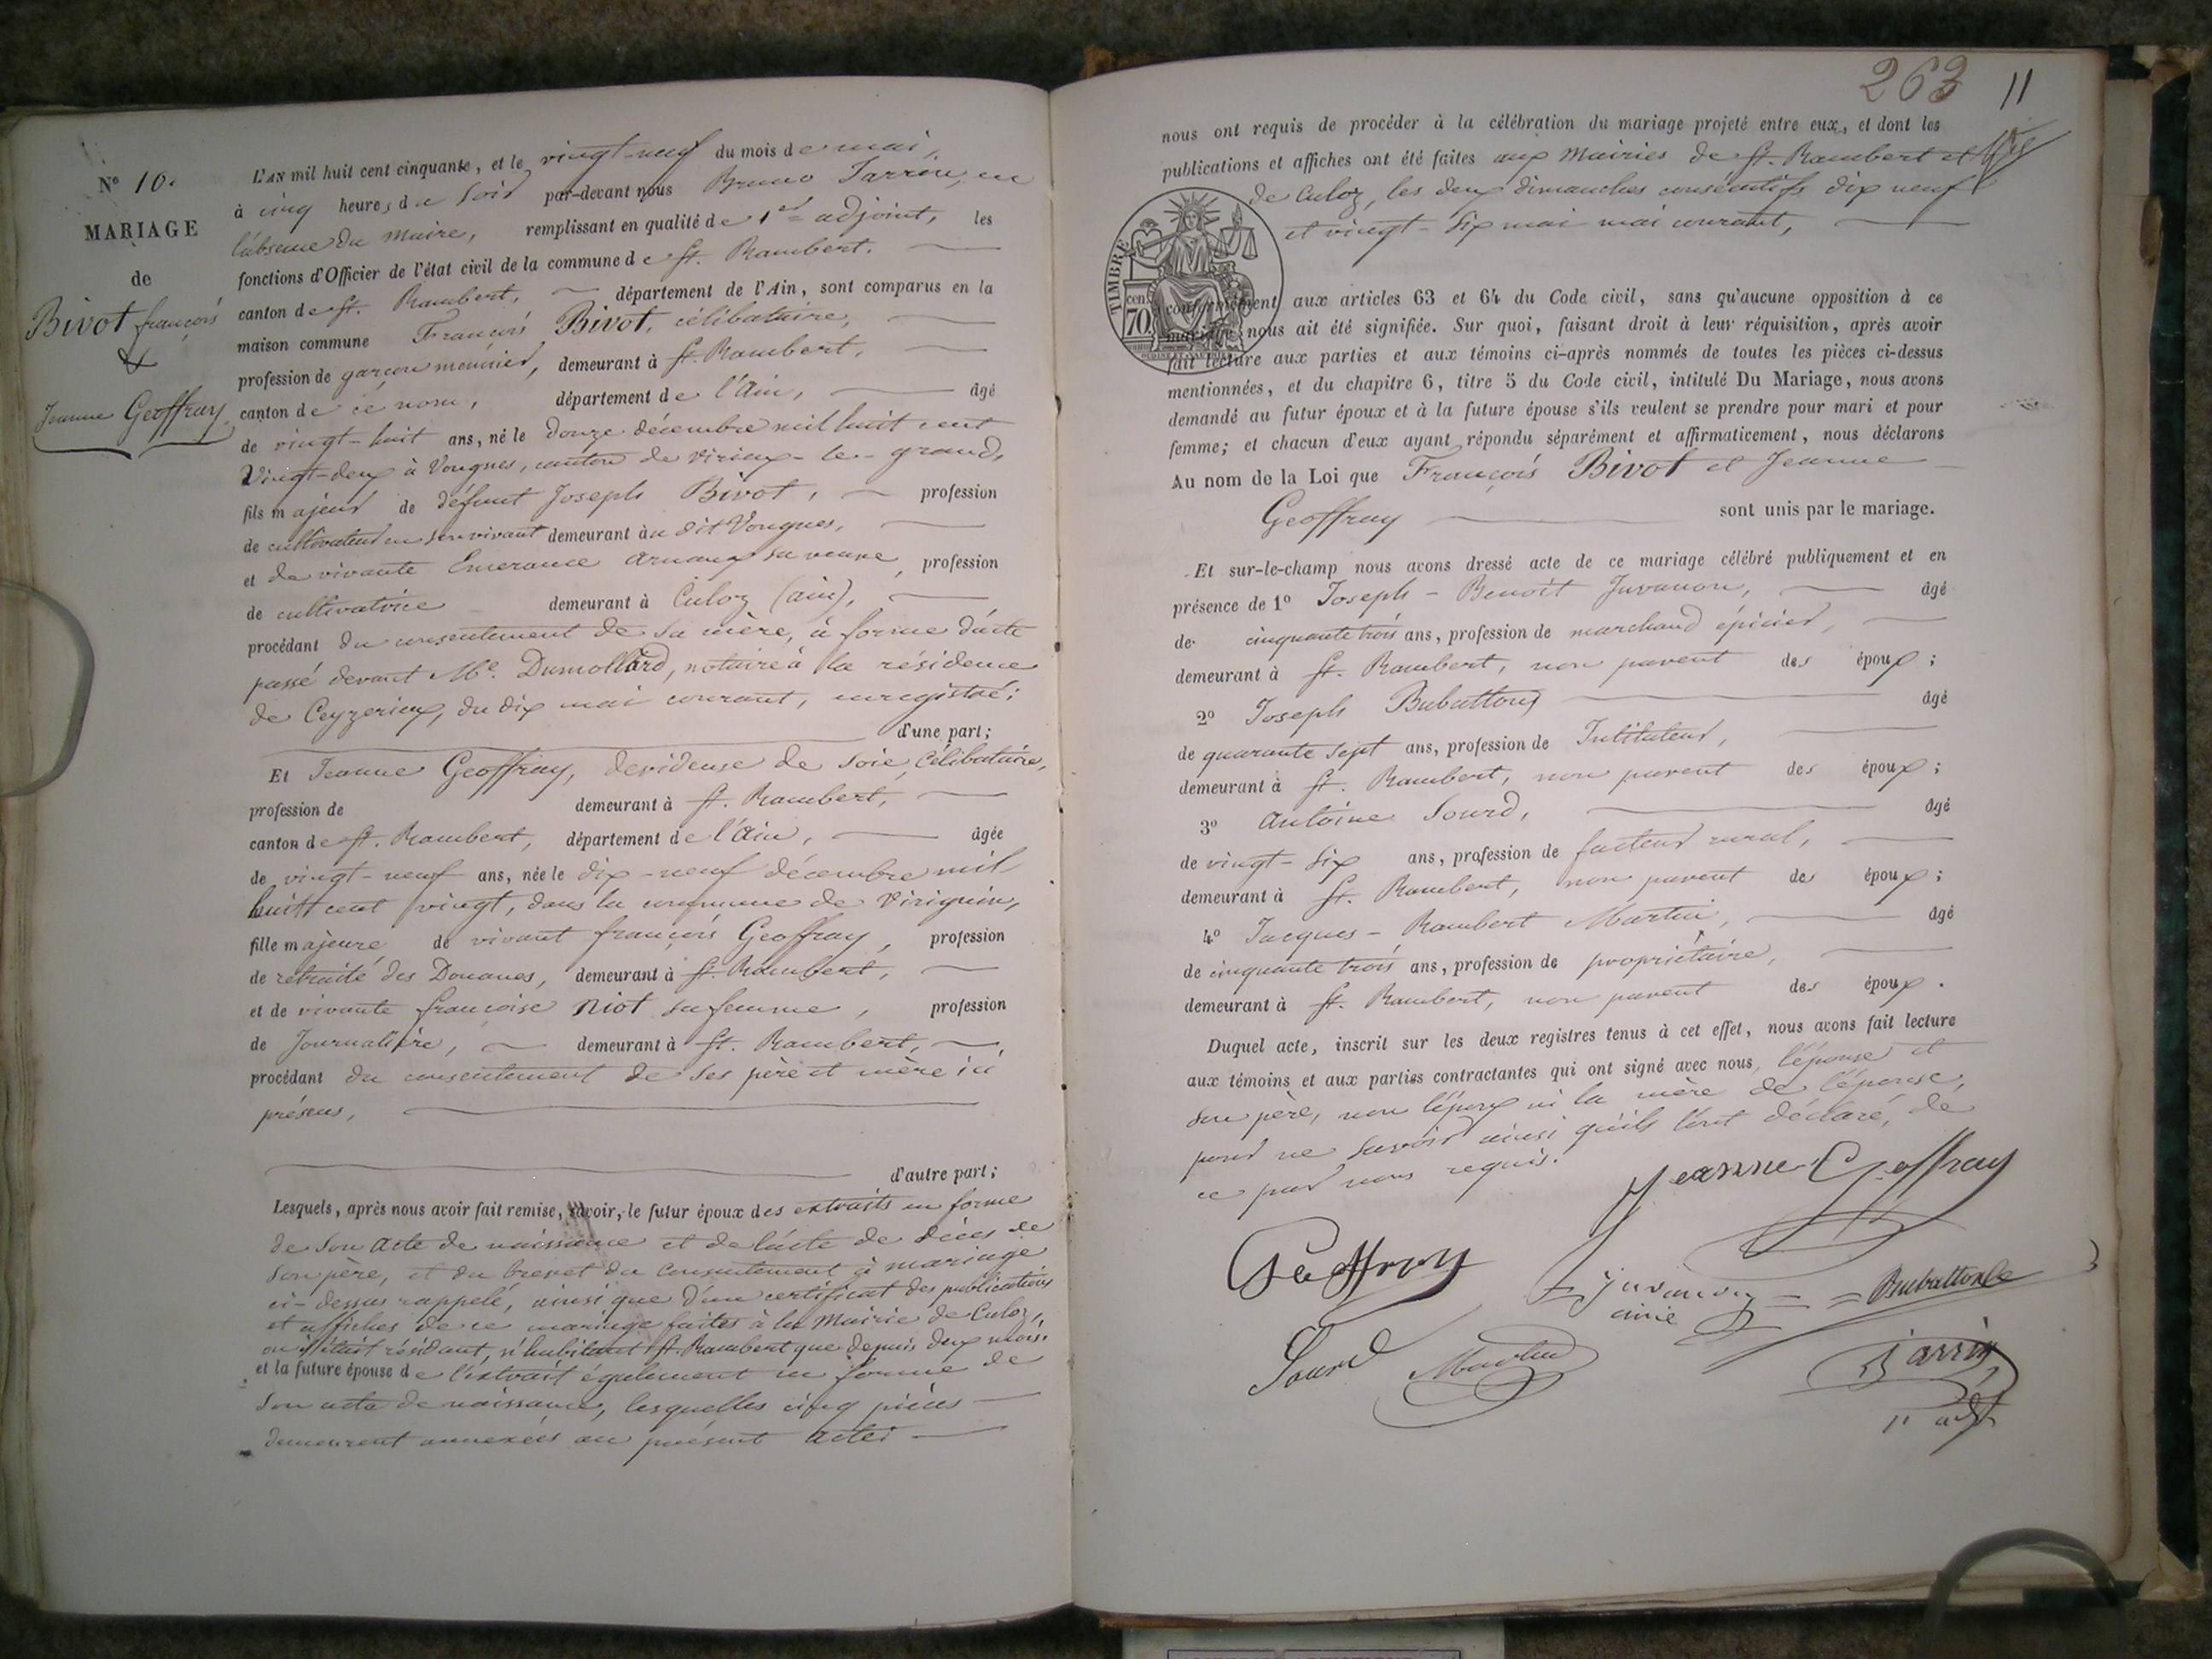 N° 10.
MARIAGE
de
Bivot françois
&
Jeanne Geoffray
L'AN mil huit cent cinquante, et le vingt-neuf du mois de mai,
à cinq heures du soir par-devant nous Bruno Jarrin, en
l'absence du Maire, remplissant en qualité de 1er adjoint, les
fonctions d'Officier de l'état civil de la commune de St. Rambert,
canton de St. Rambert, département de l'Ain, sont comparus en la
maison commune François Bivot, célibataire,
profession de garçon meunier, demeurant à St. Rambert,
canton de ce nom, département de l'Ain, âgé
de vingt-huit ans, né le douze décembre mil huit cent
vingt-deux à Vongnes, canton de Virieux-le-grand,
fils majeur de défunt Joseph Bivot, profession
de cultivateur en son vivant demeurant au dit Vongnes,
et de vivante Emerance Arnaux sa veuve, profession
de cultivatrice demeurant à Culoz (ain),
procédant du consentement de sa mère, à forme d'acte
passé devant Me. Dumollard, notaire à la résidence
de Ceyzerieux, du dix mai courant, enregistré;
d'une part;
Et Jeanne Geoffray, devideuse de soie, célibataire,
profession de demeurant à St. Rambert,
canton de St. Rambert, département de l'Ain, âgée
de vingt-neuf ans, née le dix-neuf décembre mil
huitt cent vingt, dans la commune de Virignin,
fille majeure de vivant françois Geoffray, profession
de retraité des Douanes, demeurant à St. Rambert,
et de vivante françoise Niot sa femme, profession
de Journalière, demeurant à St. Rambert,
procédant du consentement de ses père et mère ici
présens,
d'autre part;
Lesquels, après nous avoir fait remise, savoir, le futur époux des extraits en forme
de son acte de naissance et de l'acte de décès de
son père, et du brevet du consentement à mariage
ci-dessus rappelé, ainsi que d'un certificat des publications
et affiches de ce mariage faites à la Mairie de Culoz,
où il était résidant, n'habitant St. Rambert que depuis deux mois.
et la future épouse de l'extrait également en forme de
son acte de naissance, lesquelles cinq pièces
demeurent annexées au présent acte;
263 11
nous ont requis de procéder à la célébration du mariage projeté entre eux, et dont les
publications et affiches ont été faites aux Mairies de St. Rambert et
de Culoz, les deux dimanches consécutifs dix neuf
et vingt-six mai mai courant,
TIMBRE
cen
70
conformément aux articles 63 et 64 du Code civil, sans qu'aucune opposition à ce
mariage nous ait été signifiée. Sur quoi, faisant droit à leur réquisition, après avoir
fait lecture aux parties et aux témoins ci-après nommés de toutes les pièces ci-dessus
mentionnées, et du chapitre 6, titre 5 du Code civil, intitulé Du Mariage, nous avons
demandé au futur époux et à la future épouse s'ils veulent se prendre pour mari et pour
femme; et chacun d'eux ayant répondu séparément et affirmativement, nous déclarons
Au nom de la Loi que François Bivot et Jeanne
Geoffray sont unis par le mariage.
Et sur-le-champ nous avons dressé acte de ce mariage célébré publiquement et en
présence de 1° Joseph-Benoît Juvanon, âgé
de cinquante trois ans, profession de marchand épicier,
demeurant à St. Rambert, non parent des époux;
2° Joseph Bubatton âgé
de quarante sept ans, profession de Instituteur,
demeurant à St. Rambert, non parent des époux;
3° Antoine Sourd, âgé
de vingt-six ans, profession de facteur rural,
demeurant à St. Rambert, non parent des époux;
4° Jacques-Rambert Martin, âgé
de cinquante trois ans, profession de propriétaire,
demeurant à St. Rambert, non parent des époux.
Duquel acte, inscrit sur les deux registres tenus à cet effet, nous avons fait lecture
aux témoins et aux parties contractantes qui ont signé avec nous, l'épouse et
son père, non l'époux ni la mère de l'épouse,
pour ne savoir ainsi qu'ils l'ont déclaré, de
ce par nous requis.
Jeanne Geoffray
Géoffroy
juvanon
ainé
Sourd
Martin
Jarrin
1er adjt